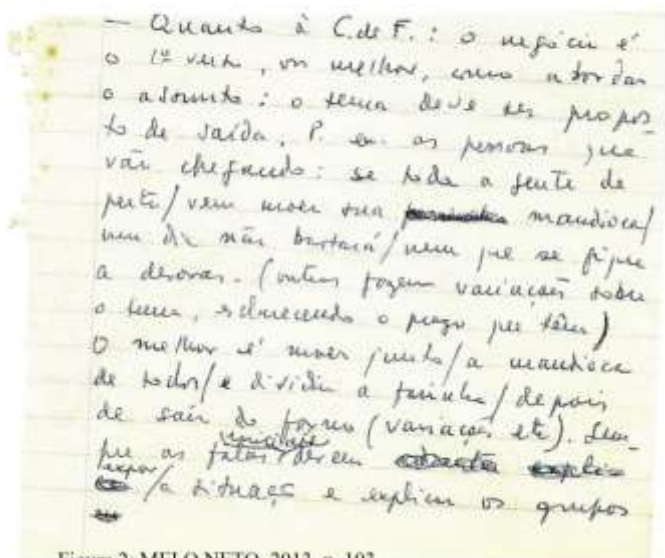 — Quanto à C. de F.: o negócio é
o 1º verso, ou melhor, como abordar
o assunto: o tema deve ser propos
to de saída. P. ex. as pessoas que
vão chegando: se toda a gente de
perto/vem moer sua mandioca/
um dia não bastará/nem que se fique
a desoras. (outros fazem variações sobre
o tema, esclarecendo o prazo que têm)
O melhor é moer junto/a mandioca
de todos/e dividir a farinha/depois
de sair do forno (variações etc). Sem
pre as falas devem
expor/a situação e explicar os grupos
Figura 2: MELO NETO, 2013, p. 103